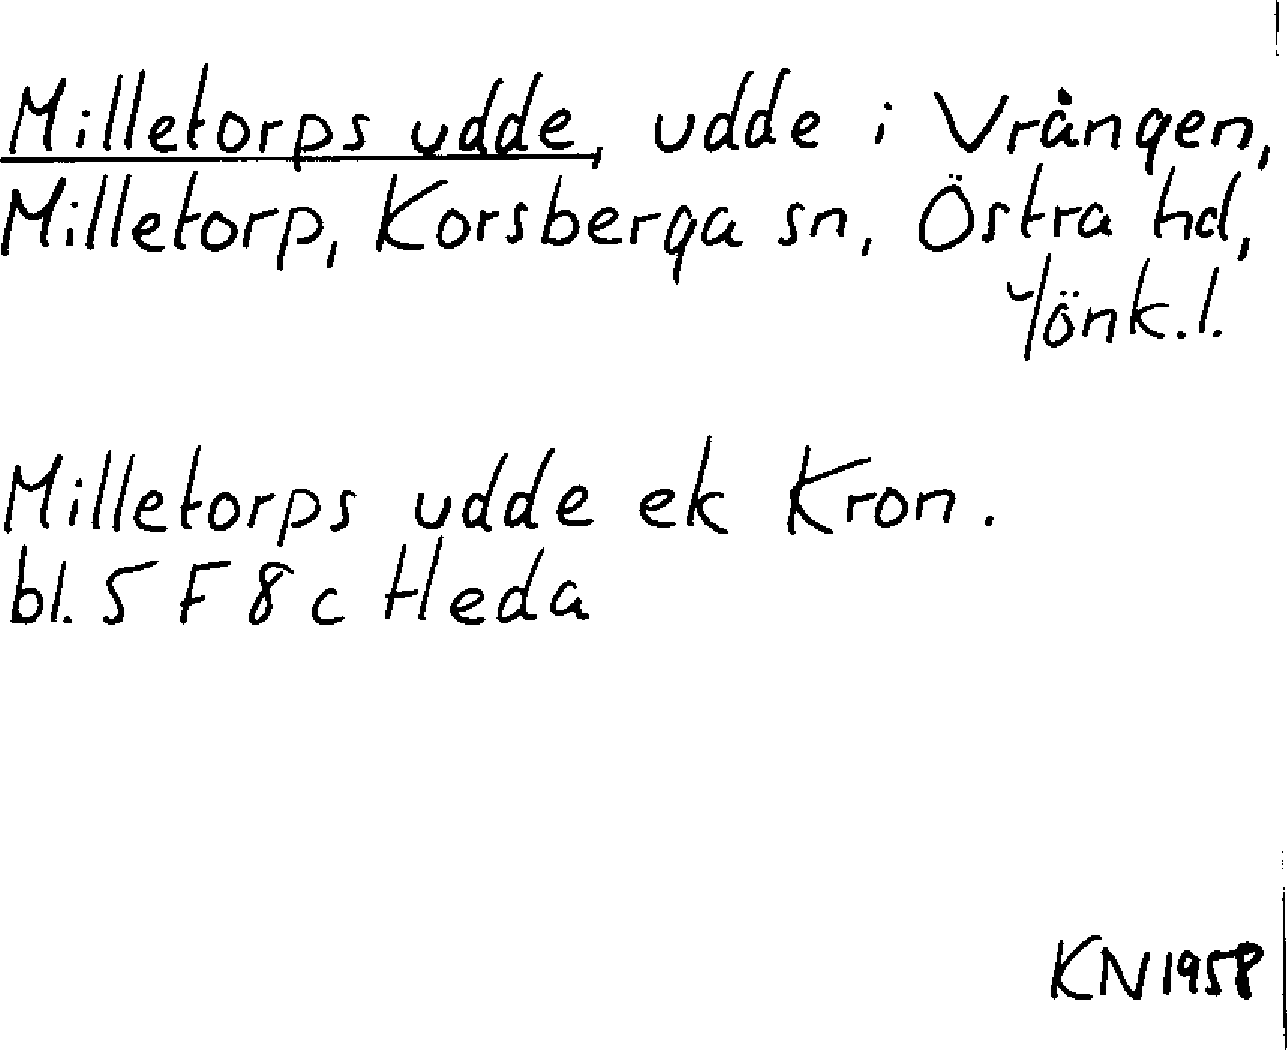 Milletorps udde, udde i Vrången,
Milletorp, Korsberga sn, Östra hd,
Jönk.l.
Milletorps udde ek Kron.
bl. 5 F 8 c Heda
KN 1958